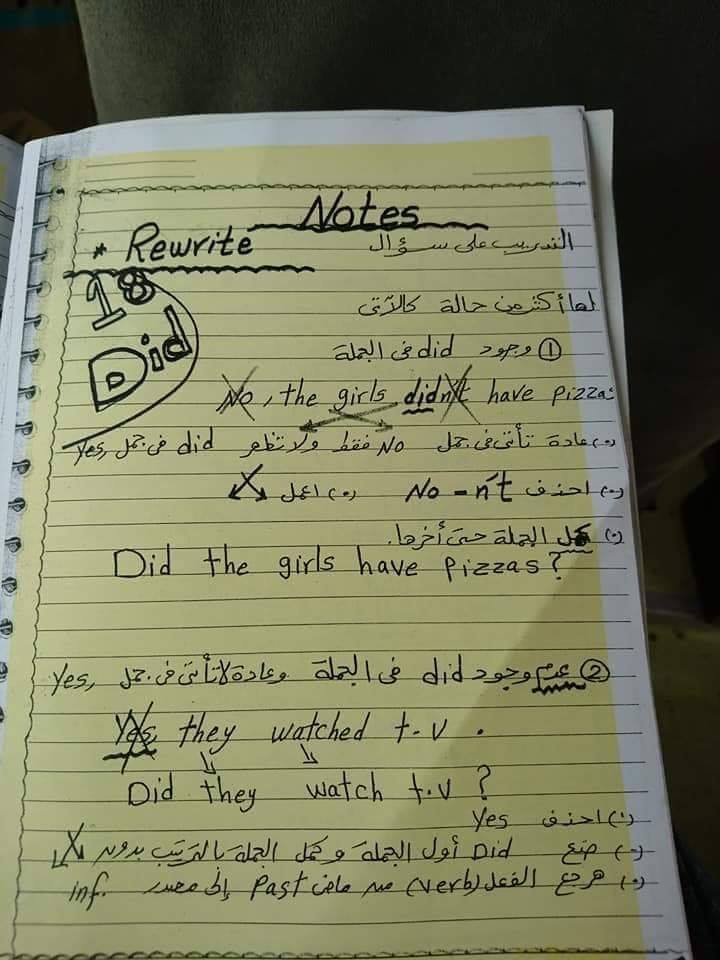 Notes
* Rewrite التدريب على سؤال
18
Did
لها أكثر من حالة كالآتى
① وجود did فى الجملة
No, the girls didn't have pizza.
(٠) عادة تأتى فى جمل No فقط ولا تظهر did فى جمل Yes,
(٠) احذف No - n't (٠) اعمل
(٠) كمل الجملة حتى أخرها.
Did the girls have pizzas?
② عدم وجود did فى الجملة وعادة لا تأتى فى جمل Yes,
Yes, they watched t.v .
Did they watch t.v ?
(٠) احذف Yes
(٠) ضع Did أول الجملة و كمل الجملة بالترتيب بدون
(٠) هرجع الفعل (verb) من ماضى Past إلى مصدر inf.